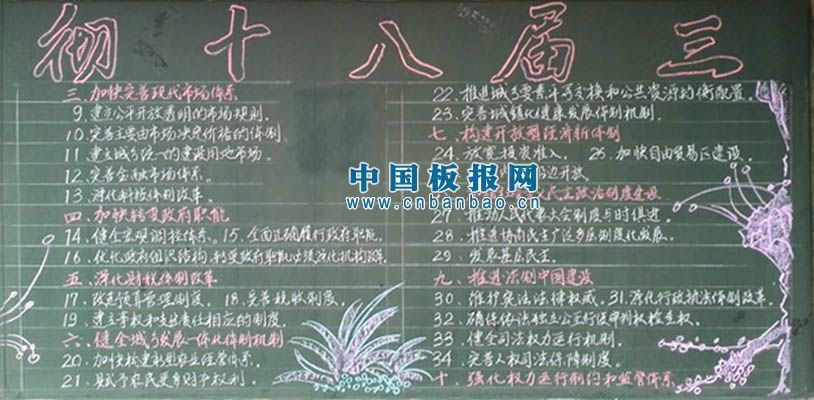 彻十八届三
三、加快完善现代市场体系
9.建立公开开放透明的市场规则.
10.完善主要由市场决定价格的体制
11.建立城乡统一的建设用地市场.
12.完善金融市场体系.
13.深化科技体制改革.
四、加快转变政府职能
14.健全宏观调控体系.15.全面正确履行政府职能.
16.优化政府组织结构.
五、深化财税体制改革
17.改进预算管理制度.18.完善税收制度.
19.建立事权和支出责任相适应的制度.
六、健全城乡发展一体化体制机制
20.加快构建新型农业经营体系.
21.赋予农民更多财产权利
22.推进城乡要素平等交换和公共资源均衡配置.
23.完善城镇化健康发展体制机制.
七、构建开放型经济新体制
24.放宽投资准入.25.加快自由贸易区建设.
边开放.
民主政治制度建设
27.推动人民代表大会制度与时俱进.
28.推进协商民主广泛多层制度化发展.
29.发展基层民主.
九、推进法制中国建设
30.维护宪法法律权威.31.深化行政执法体制改革.
32.确保依法独立公正行使审判权检查权.
33.健全司法权力运行机制.
34.完善人权司法保障制度.
十、强化权力运行制约和监督体系
中国板报网
www.cnbanbao.cn